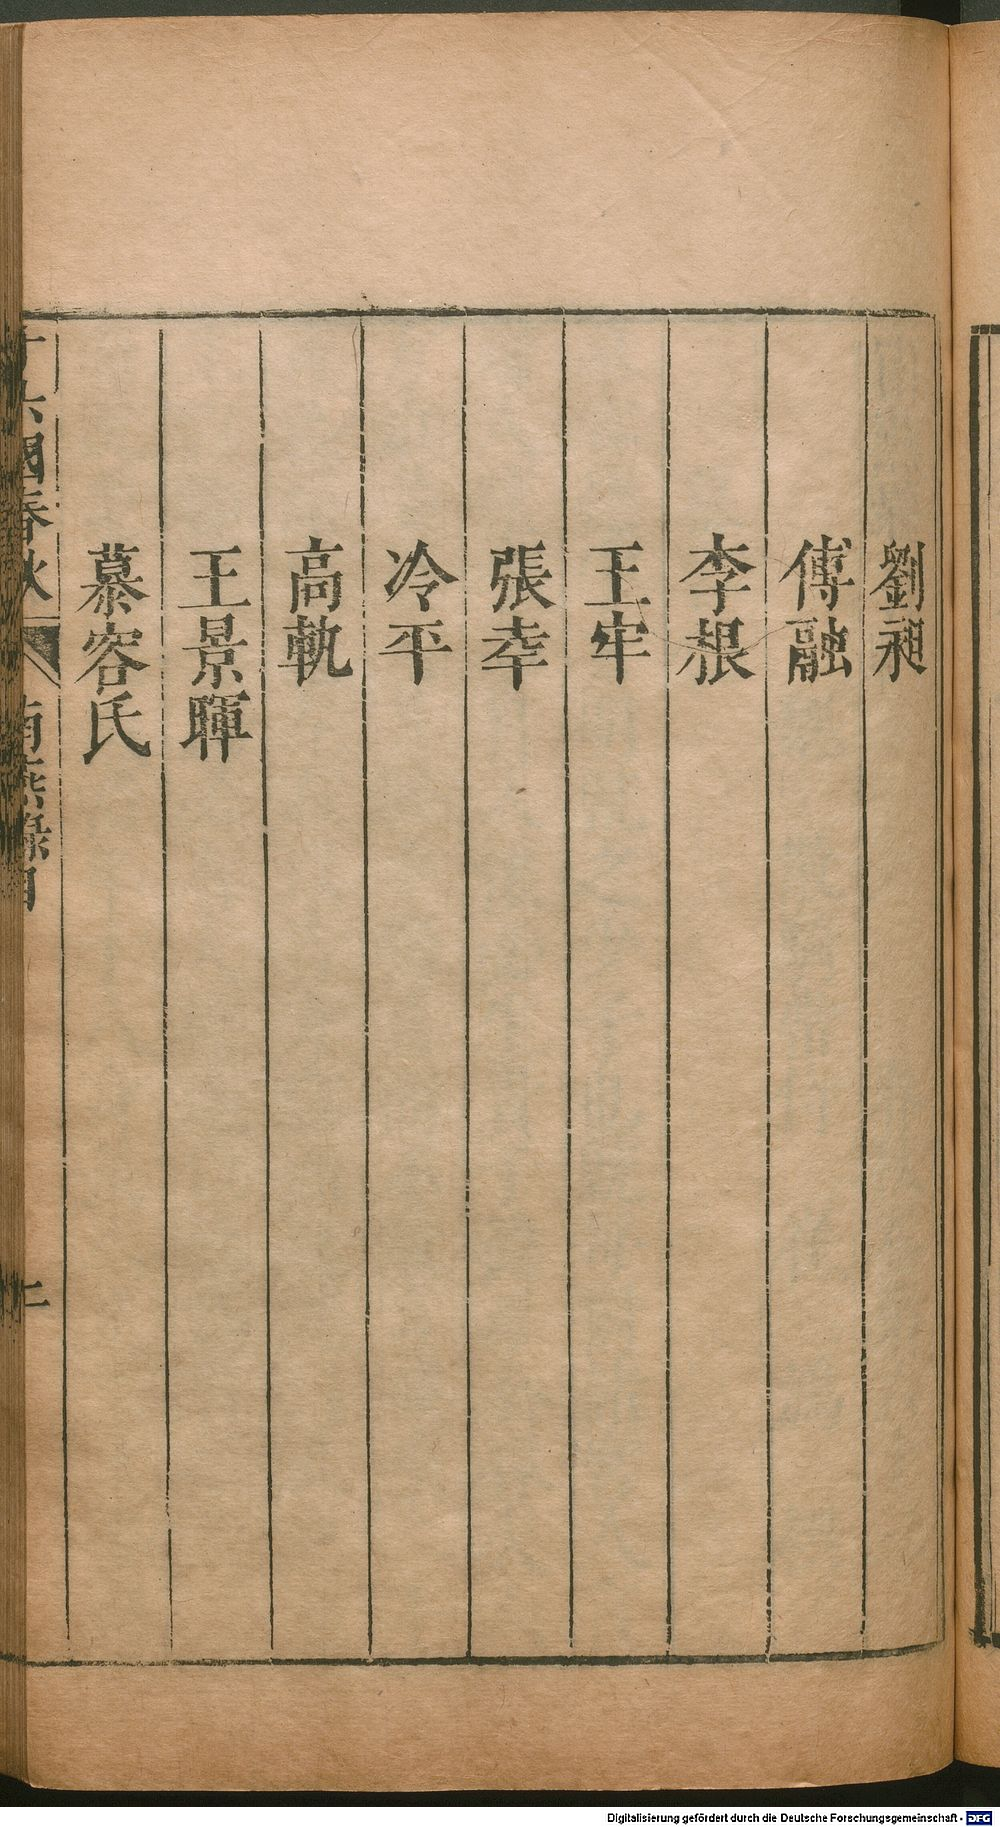 劉昶
傅融
李根
王牢
張幸
冷平
高軌
王景暉
慕容氏
十六國春秋 南燕錄目 二
Digitalisierung gefördert durch die Deutsche Forschungsgemeinschaft - DFG